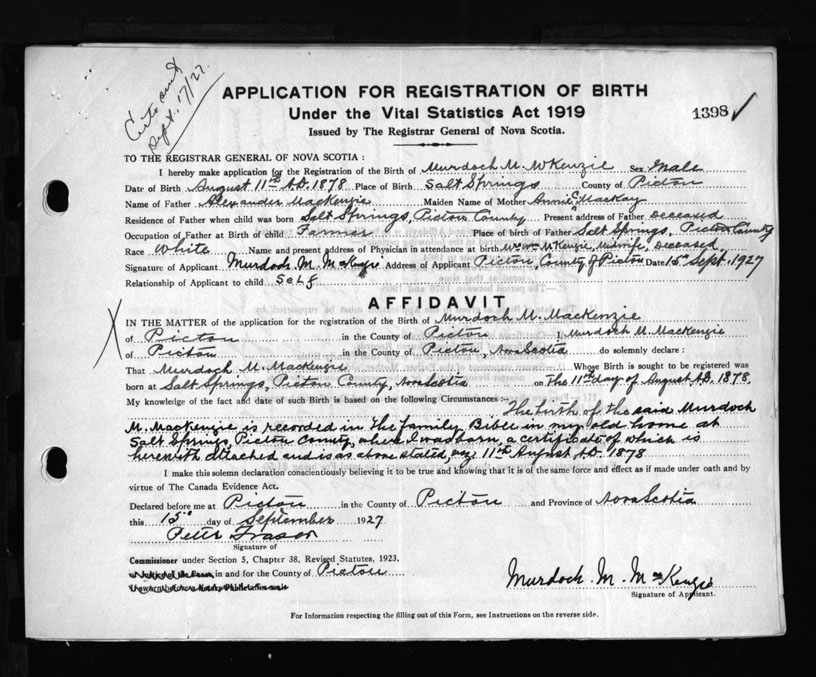 Certs out
Sept. 17/27.
APPLICATION FOR REGISTRATION OF BIRTH
Under the Vital Statistics Act 1919
1398 ✓
Issued by The Registrar General of Nova Scotia.
TO THE REGISTRAR GENERAL OF NOVA SCOTIA :
I hereby make application for the Registration of the Birth of Murdoch M. McKenzie Sex Male
Date of Birth August 11th A.D. 1878 Place of Birth Salt Springs County of Pictou
Name of Father Alexander MacKenzie Maiden Name of Mother Annie MacKay
Residence of Father when child was born Salt Springs, Pictou County Present address of Father Deceased
Occupation of Father at Birth of child Farmer Place of birth of Father Salt Springs, Pictou County
Race White Name and present address of Physician in attendance at birth McKenzie, Midwife, Deceased
Signature of Applicant Murdoch M. McKenzie Address of Applicant Pictou, County of Pictou Date 15th Sept. 1927
Relationship of Applicant to child Self
AFFIDAVIT
IN THE MATTER of the application for the registration of the Birth of Murdoch M. MacKenzie
of Pictou in the County of Pictou I, Murdoch M. MacKenzie
of Pictou in the County of Pictou, Nova Scotia do solemnly declare :
That Murdoch M. MacKenzie Whose Birth is sought to be registered was
born at Salt Springs, Pictou County, Nova Scotia on The 11th day of August A.D. 1878.
My knowledge of the fact and date of such Birth is based on the following Circumstances :- The birth of the said Murdoch
M. MacKenzie is recorded in the family Bible in my old home at
Salt Springs, Pictou County, where I was born, a certificate of which is
herewith attached and is as above stated, viz: 11th August A.D. 1878
I make this solemn declaration conscientiously believing it to be true and knowing that it is of the same force and effect as if made under oath and by
virtue of The Canada Evidence Act.
Declared before me at Pictou in the County of Pictou and Province of Nova Scotia
this 15th day of September 1927
Peter Fraser
Signature of
Commissioner under Section 5, Chapter 38, Revised Statutes, 1923.
in and for the County of Pictou
Murdoch. M. MacKenzie
Signature of Applicant.
For Information respecting the filling out of this Form, see Instructions on the reverse side.